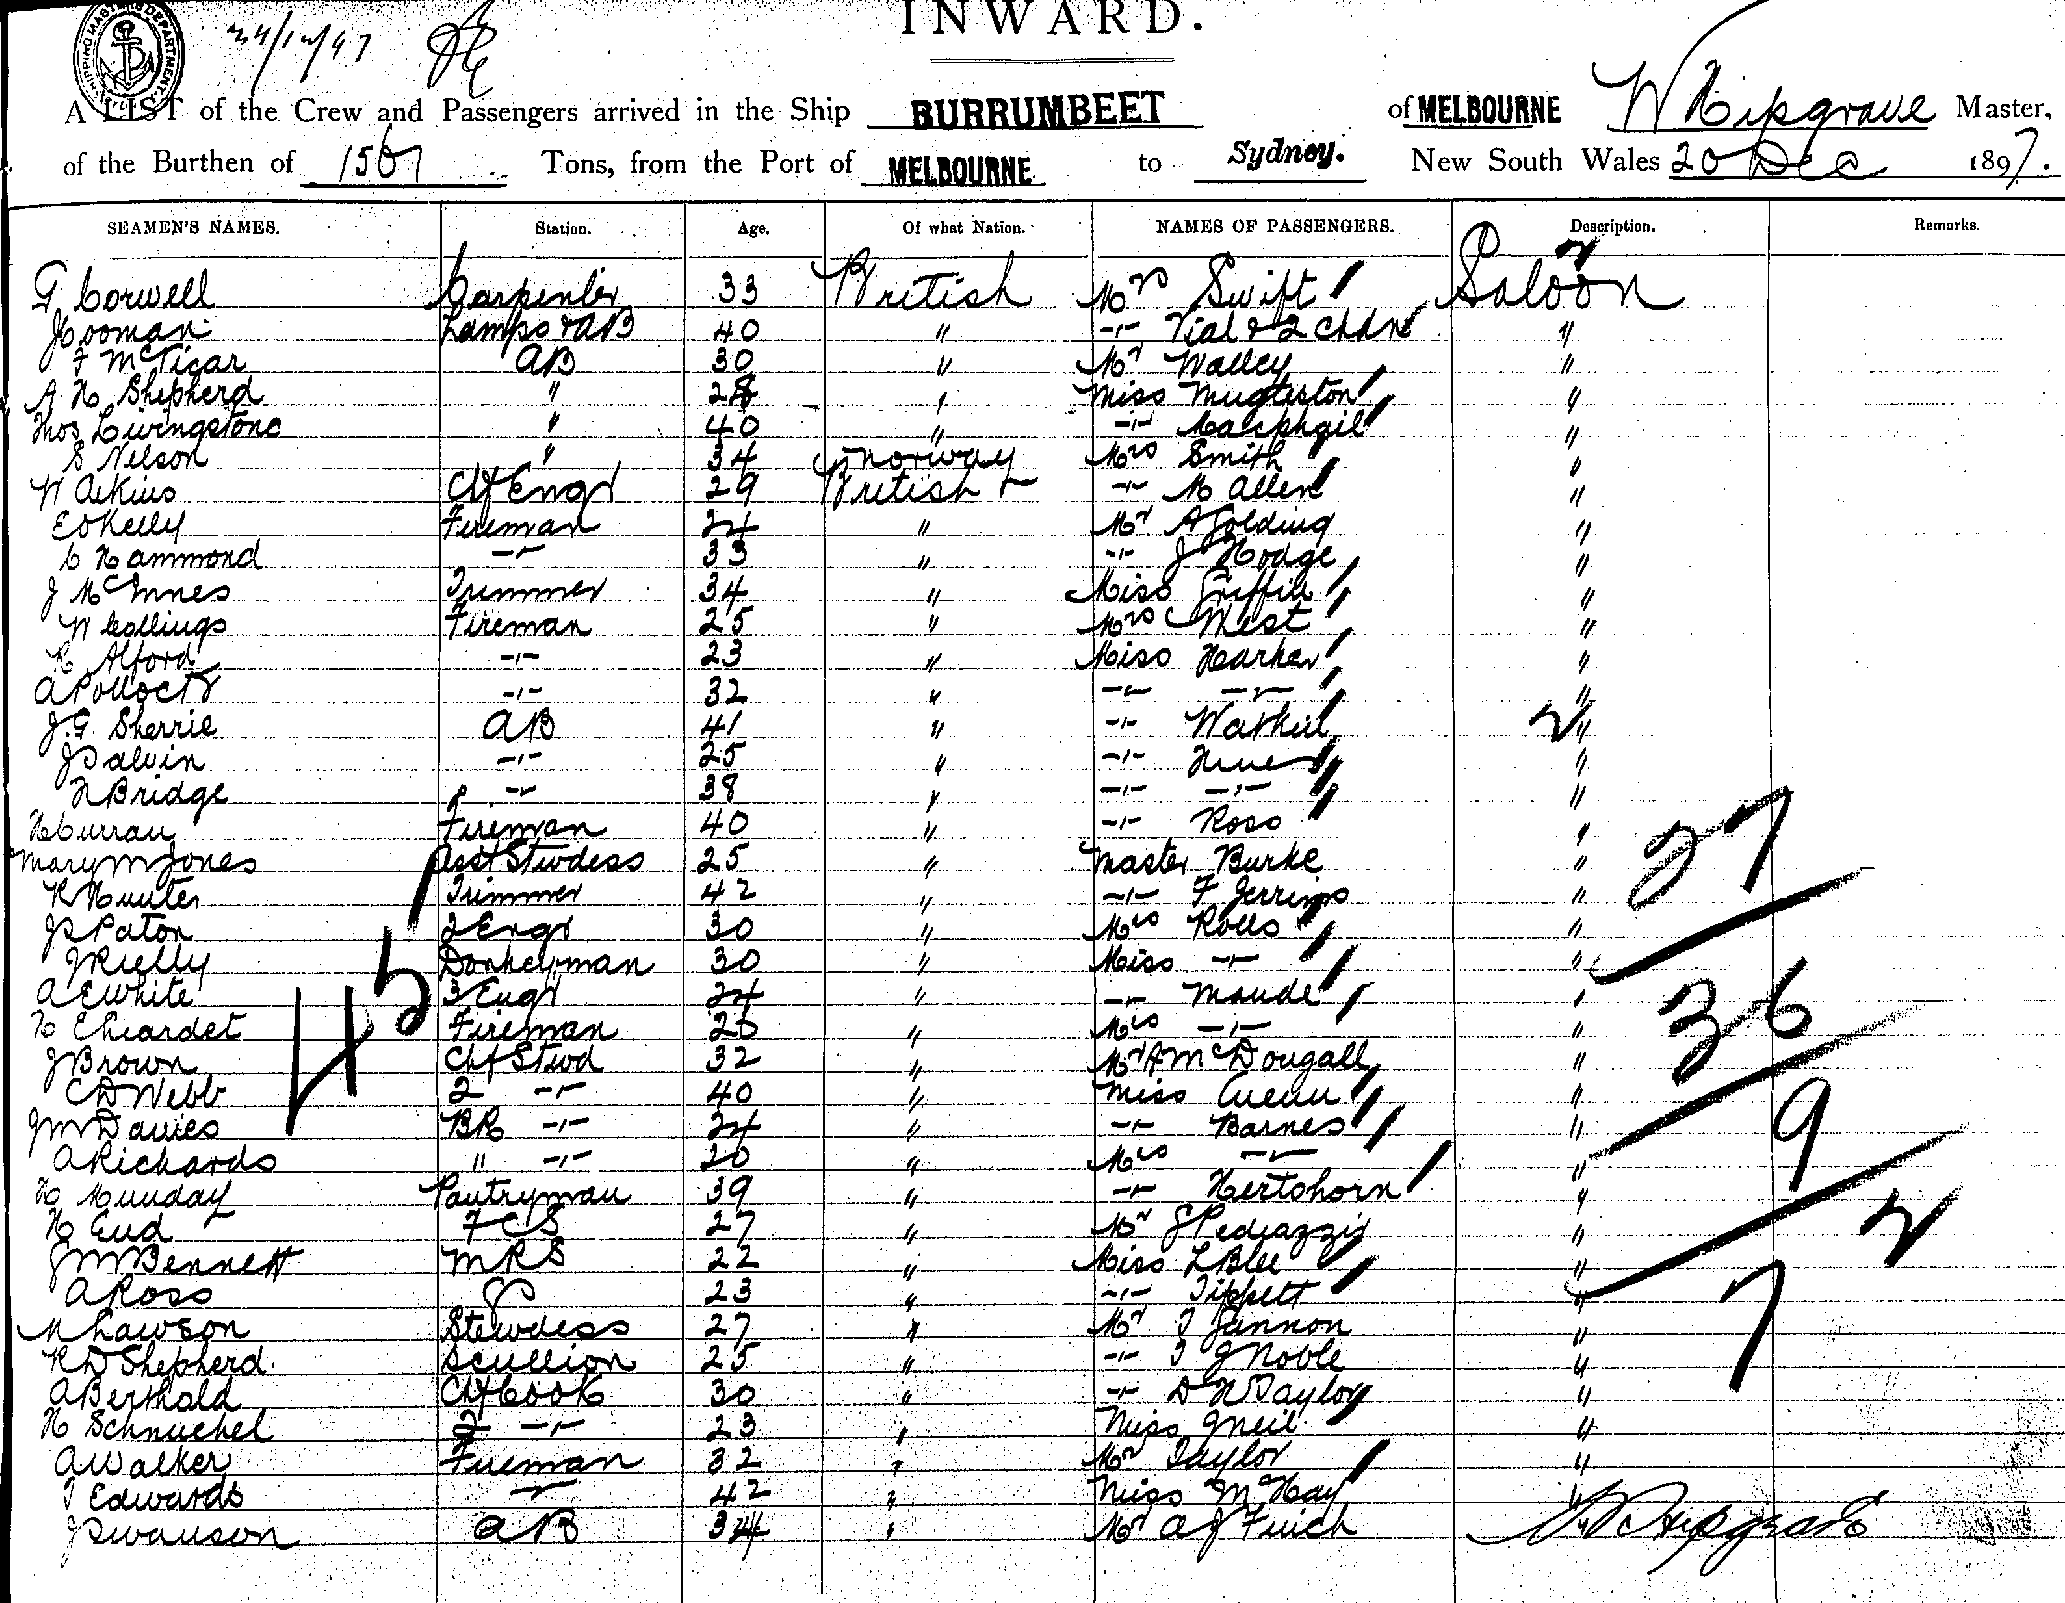 INWARD.
24/12/97
A LIST of the Crew and Passengers arrived in the Ship BURRUMBEET of MELBOURNE W Hipgrave Master,
of the Burthen of 1567 Tons, from the Port of MELBOURNE to Sydney. New South Wales 20 Dec 1897.
SEAMEN'S NAMES. Station. Age. Of what Nation. NAMES OF PASSENGERS. Description. Remarks.
G Corwell Carpenter 33 British Mrs Swift Saloon
J Cooman Lamps & AB 40 " -"- Vial & 2 Chdn "
F McTigar AB 30 " Mr Walley "
A H Shepherd " 28 " Miss Mugleston "
Thos Livingstone " 40 " -"- "
S Nelson " 34 Norway Mrs Smith "
W Aikins Chf Engr 29 British -"- M Allen "
E OKelly Fireman 24 " Mr A Golding "
C Hammond -"- 33 " -"- J Hodge "
J McInnes Trimmer 34 " Miss Griffin "
W Collings Fireman 25 " Mrs West "
R Alford -"- 23 " Miss Harker "
A Pollock -"- 32 " -"- -"- "
J.G. Sherrie AB 41 " -"- "
J Dalvin -"- 25 " -"- "
H Bridge -"- 38 " -"- -"- "
H Curran Fireman 40 " -"- Ross "
Mary M Jones Asst Stwdess 25 " Master Burke " 27
R Hunter Trimmer 42 " -"- F Jerrims "
J S Paton 2 Engr 30 " Mrs Rolls "
J Rielly Donkeyman 30 " Miss -"- "
A E White 3 Engr 24 " -"- Maude "
H Cheardet Fireman 26 " Mrs -"- " 36
J Brown Chf Stwd 32 " Mr A McDougall "
45
C D Webb 2 -"- 40 " Miss "
J M Davies BR -"- 24 " -"- Barnes " 9
A Richards " -"- 20 " Mrs -"- "
H Munday Pantryman 39 " -"- Hertshorn "
H Eud FCS 27 " Mr J Pedrazzi "
J M Bennett MRS 22 " Miss L Blee "
A Ross 23 " -"- Tippett "
M Lawson Stewdess 27 " Mr T Gannon " 7
R D Shepherd Scullion 25 " -"- T G Noble "
A Berthald Chf Cook 30 " -"- D W Taylor "
H Schnuchel 2 -"- 23 " Miss Neil "
A Walker Fireman 32 " Mr Taylor "
T Edwards -"- 42 " Miss M Hay "
J Swanson AB 34 " Mr A J Finch W Hipgrave